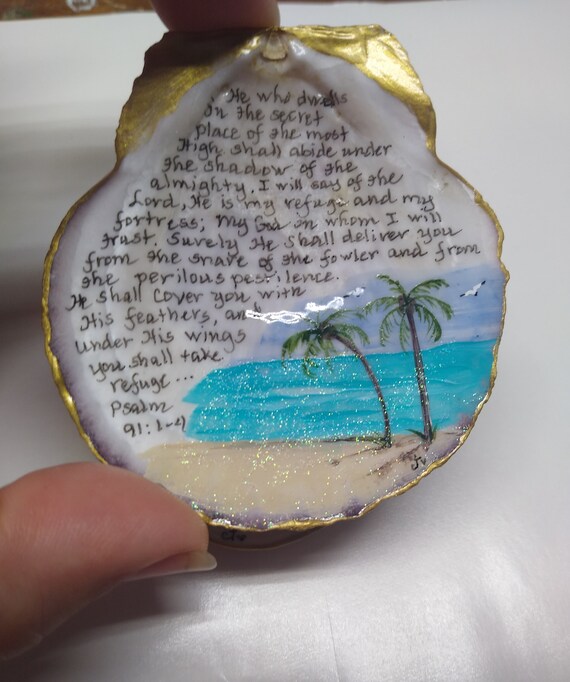 He who dwells
in the secret
place of the most
High shall abide under
the shadow of the
almighty. I will say of the
Lord, He is my refuge and my
fortress; my God in whom I will
trust. Surely He shall deliver you
from the snare of the fowler and from
the perilous pestilence.
He shall cover you with
His feathers, and
under His wings
you shall take
refuge...
Psalm
91:1-4